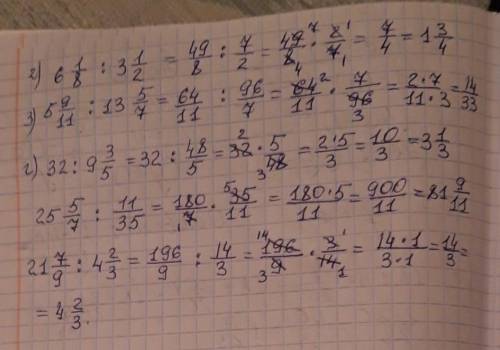 2) 6 1/8 : 3 1/2 = 49/8 : 7/2 = 49⁷/8₄ · 2¹/7₁ = 7/4 = 1 3/4
3) 5 9/11 : 13 5/7 = 64/11 : 96/7 = 64²/11 · 7/96₃ = 2·7/11·3 = 14/33
г) 32 : 9 3/5 = 32 : 48/5 = 32² · 5/₃48 = 2·5/3 = 10/3 = 3 1/3
25 5/7 : 11/35 = 180/₁7 · ⁵35/11 = 180·5/11 = 900/11 = 81 9/11
21 7/9 : 4 2/3 = 196/9 : 14/3 = ¹⁴196/₃9 · 3¹/14₁ = 14·1/3·1 = 14/3 =
= 4 2/3.